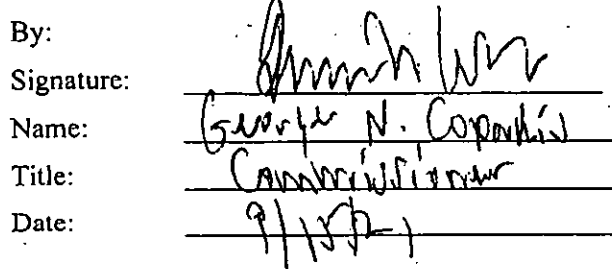 By:
Signature:
Name: George N. Copadis
Title: Commissioner
Date: 9/15/21